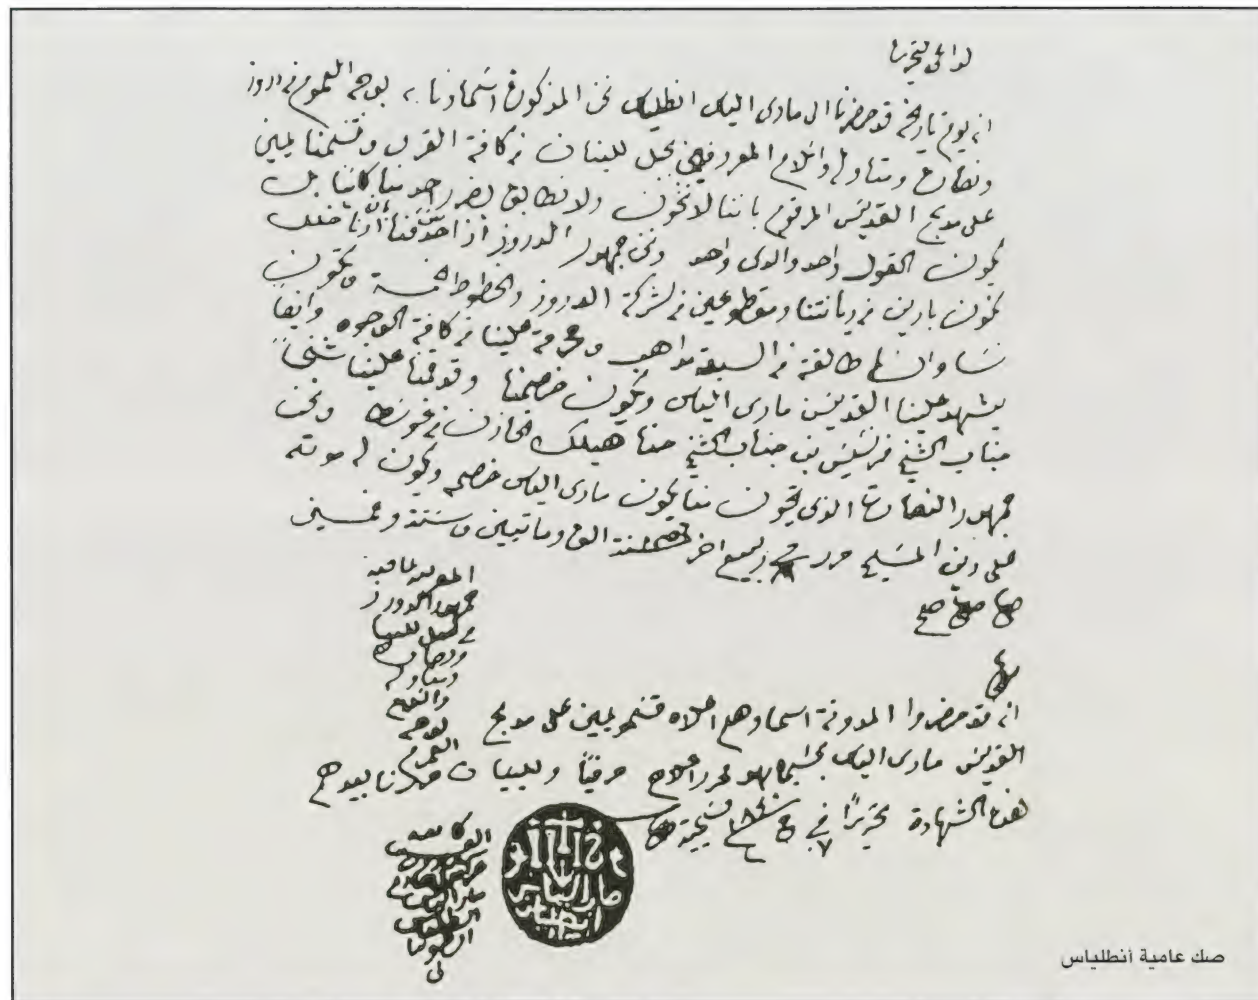 انه يوم تاريخه قد حضرنا الى مارى الياس انطلياس نحن المذكورة اسماؤنا بوجه العموم من دروز
ونصارة ومتاوله واسلام المعروفين بجبل لبنان من كافة القرى وقسمنا يمين
على مدبح القديس المرقوم باننا لا نخون ولا نطابق بضرر احد منا كاينا من
يكون القول واحد والراى واحد ونحن جمهور الدروز اذا احد منا
نكون بارين من ديانتنا ومقطوعين من شركة الدروز والخطوط الخمسة وتكون
نسانا طالقة من السبعة مداهب ومحرمة علينا من كافة الوجوه وايضاً
يشهد علينا القديس مارى الياس ويكون خصمنا وقدمنا علينا
جناب الشيخ فرنسيس بن جناب الشيخ حنا هيكل الخازن من غوسطا ونحن
جمهور النصارة الذى يخون منا يكون مارى الياس خصمه ولا يكون له موته
على دين المسيح حرر في ربيع اخر سنة الف وماتيين وستة وخمسين
صح صح صح
جمهور الدروز
في جبل لبنان
ونصاره
ومتاوله
واسلام
بوجه
العموم
انه قد حضروا المدونة اسماوهم اعلاه وقسمو يمين على مدبح
القديس مارى الياس بحسبما هو محرر اعلاه حرفياً وللبيان حررنا بيدهم
هذه الشهادة تحريرًا في
كاتبه
مار الياس
انطلياس
مار الياس
انطلياس
صك عامية أنطلياس